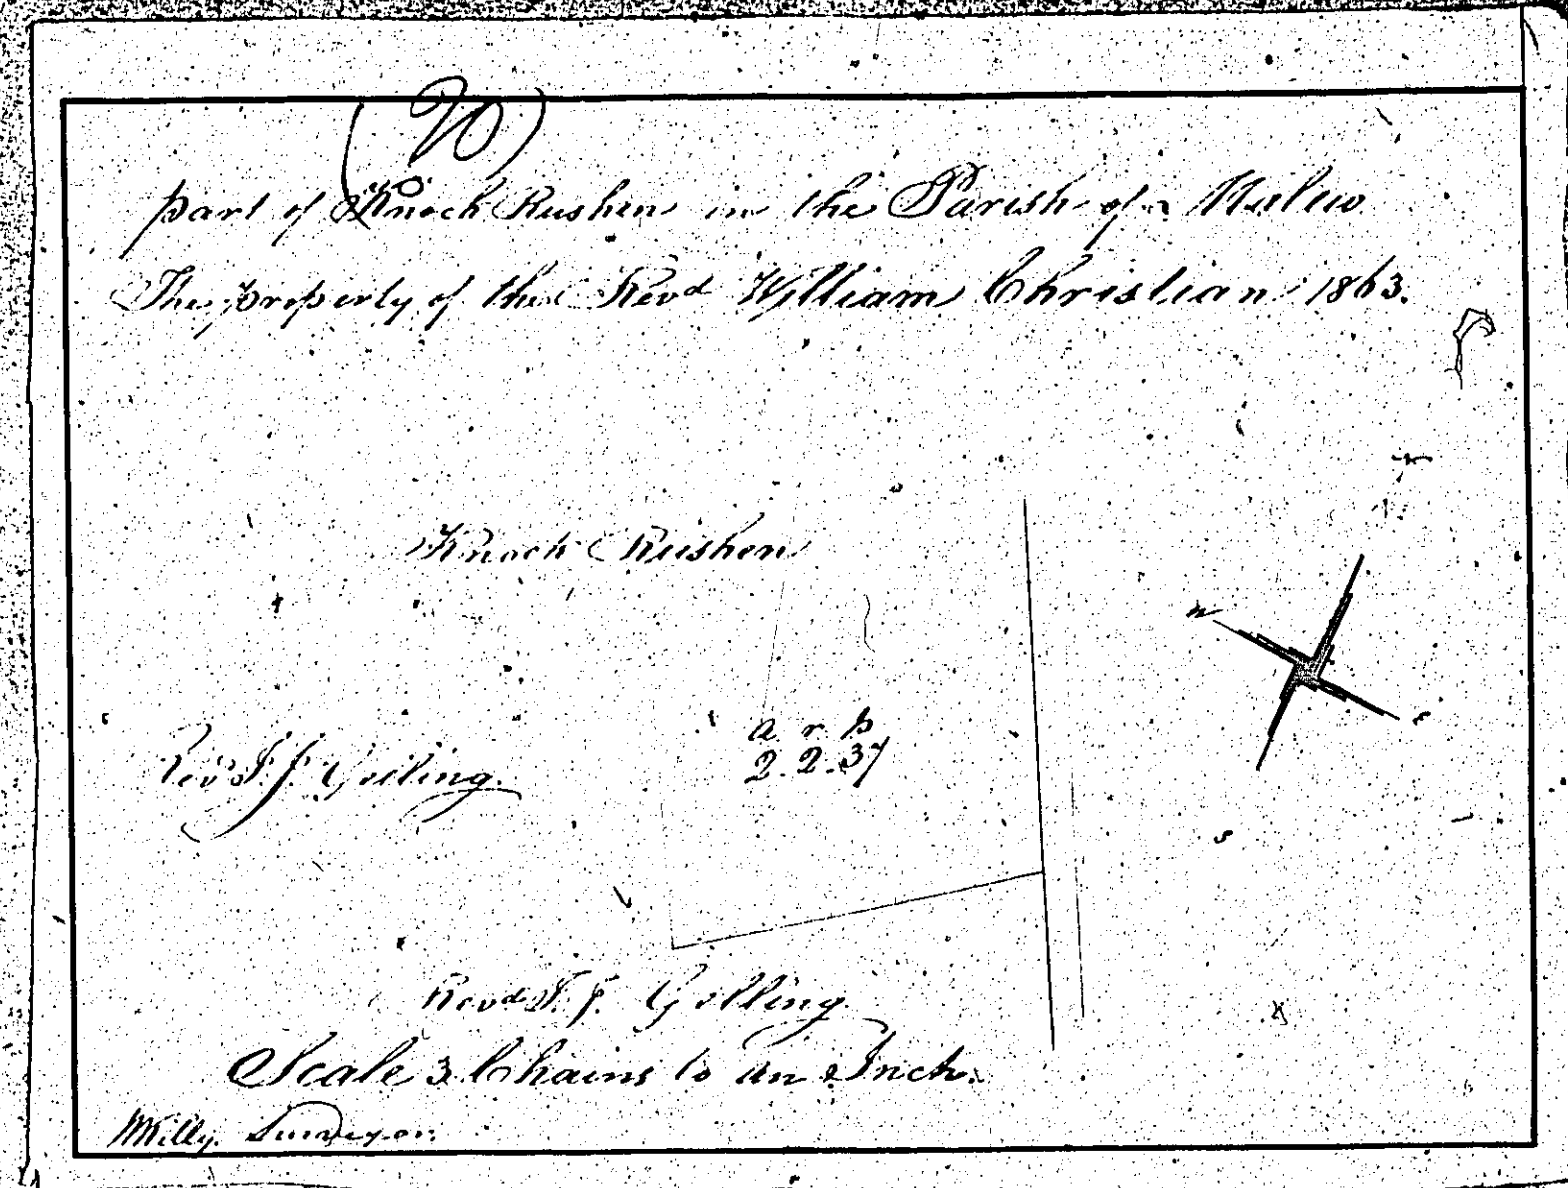 (20)
part of Knock Rushen in the Parish of Malew
The property of the Revd William Christian 1863.
Knock Rushen
n
a r p
Revd J. J. Gelling. 2.2.37
s
Revd J. J. Gelling
Scale 3 Chains to an Inch.
Surveyor.